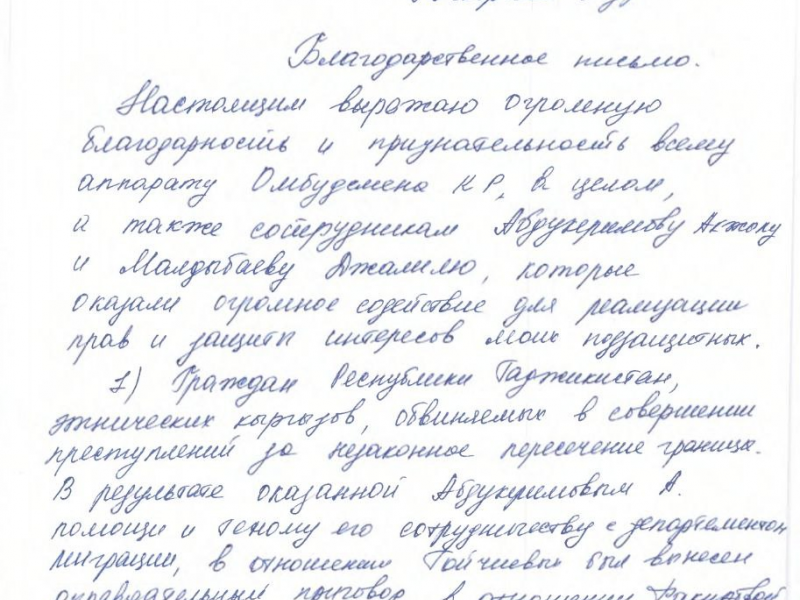 Благодарственное письмо.
Настоящим выражаю огромную
благодарность и признательность всему
аппарату Омбудсмена КР, в целом,
а также сотрудникам Абдукеримову Акжолу
и Малдыбаеву Джалилю, которые
оказали огромное содействие для реализации
прав и защиты интересов моих подзащитных.
1) Граждан Республики Таджикистан,
этнических кыргызов, обвиняемых в совершении
преступлений за незаконное пересечение границы.
В результате оказанной Абдукеримовым А.
помощи и тесному его сотрудничеству с департаментом
миграции, в отношении Тойчиевых был вынесен
оправдательный приговор, в отношении